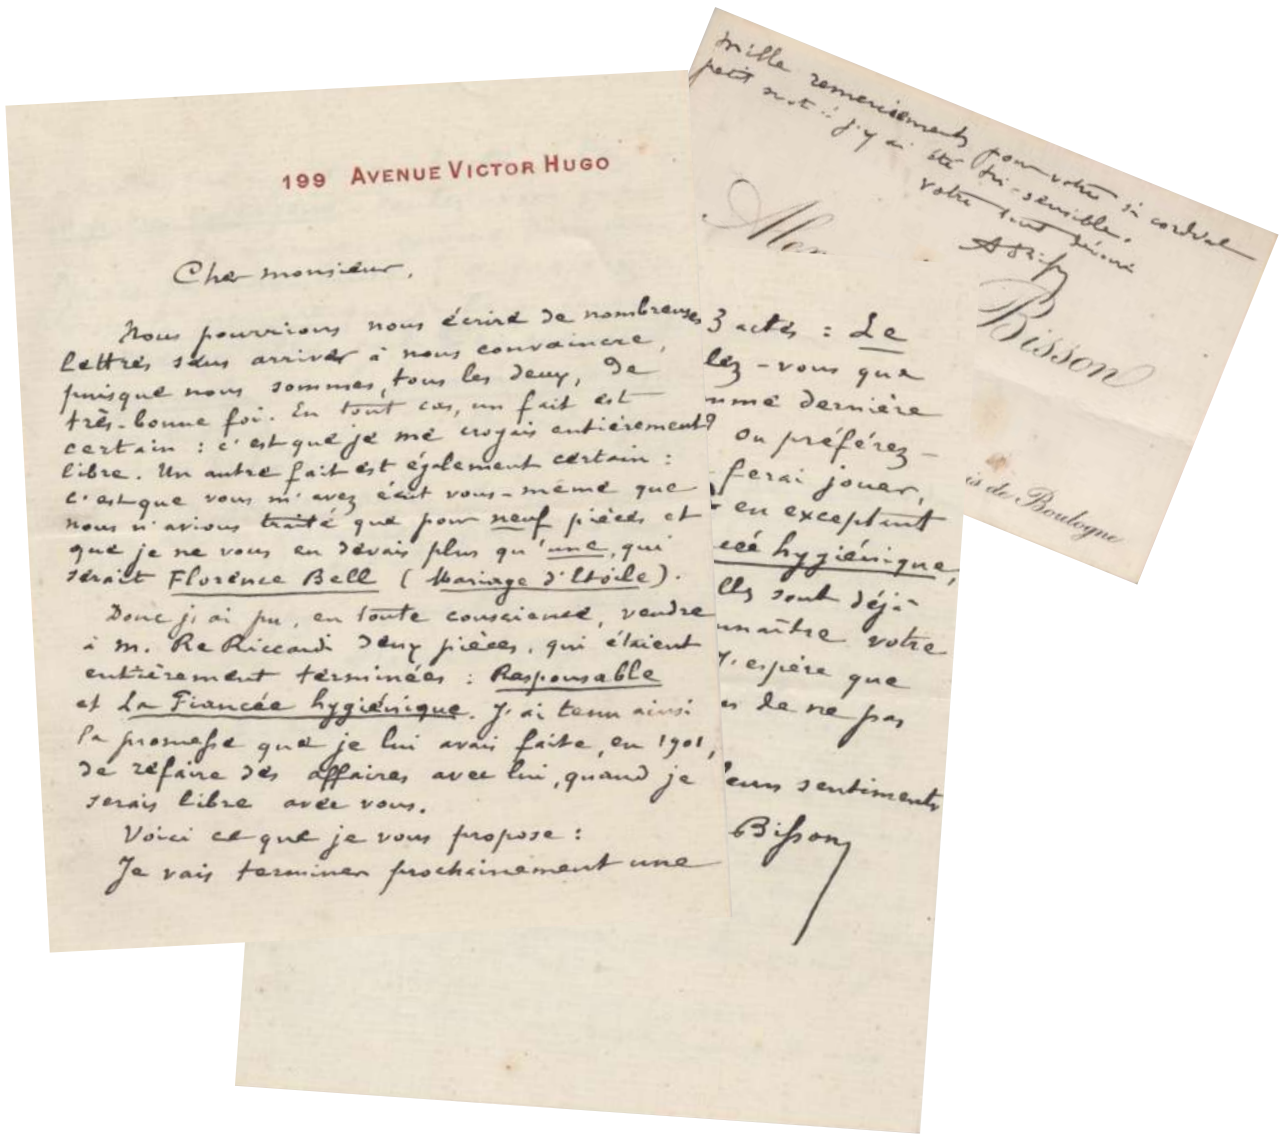 199 AVENUE VICTOR HUGO
Cher monsieur,
Nous pourrions nous écrire de nombreuses
lettres sans arriver à nous convaincre,
puisque nous sommes, tous les deux, de
très-bonne foi. En tout cas, un fait est
certain : c'est que je me croyais entièrement
libre. Un autre fait est également certain :
c'est que vous m'avez écrit vous-même que
nous n'avions traité que pour neuf pièces et
que je ne vous en devais plus qu'une, qui
serait Florence Bell (Mariage d'Etoile).
Donc j'ai pu, en toute conscience, vendre
à M. Re Riccardi deux pièces, qui étaient
entièrement terminées : Responsable
et La Fiancée hygiénique. J'ai tenu ainsi
la promesse que je lui avais faite, en 1901,
de refaire des affaires avec lui, quand je
serais libre avec vous.
Voici ce que je vous propose :
Je vais terminer prochainement une
3 actes : Le
lez-vous que
mme dernière
? Ou préférez-
ferai jouer,
en exceptant
cée hygiénique,
lls sont déjà
nnaître votre
J'espère que
de ne pas
leurs sentiments
Bisson
mille remerciements pour votre si cordial
petit mot : j'y ai été très-sensible.
votre tout dévoué
ABisson
Alex
Bisson
is de Boulogne